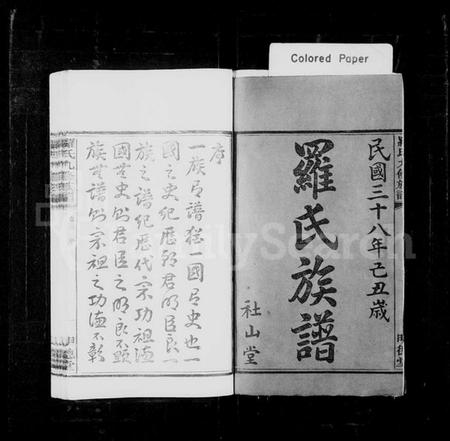 Colored Paper
民國三十八年己丑歲
羅氏族譜
社山堂
序
一族有譜猶一國有史也一
國之史紀歷朝君明臣良一
族之譜紀歷代宗功祖德
國無史則君臣之明良不顯
族無譜則宗祖之功德不彰
FamilySearch